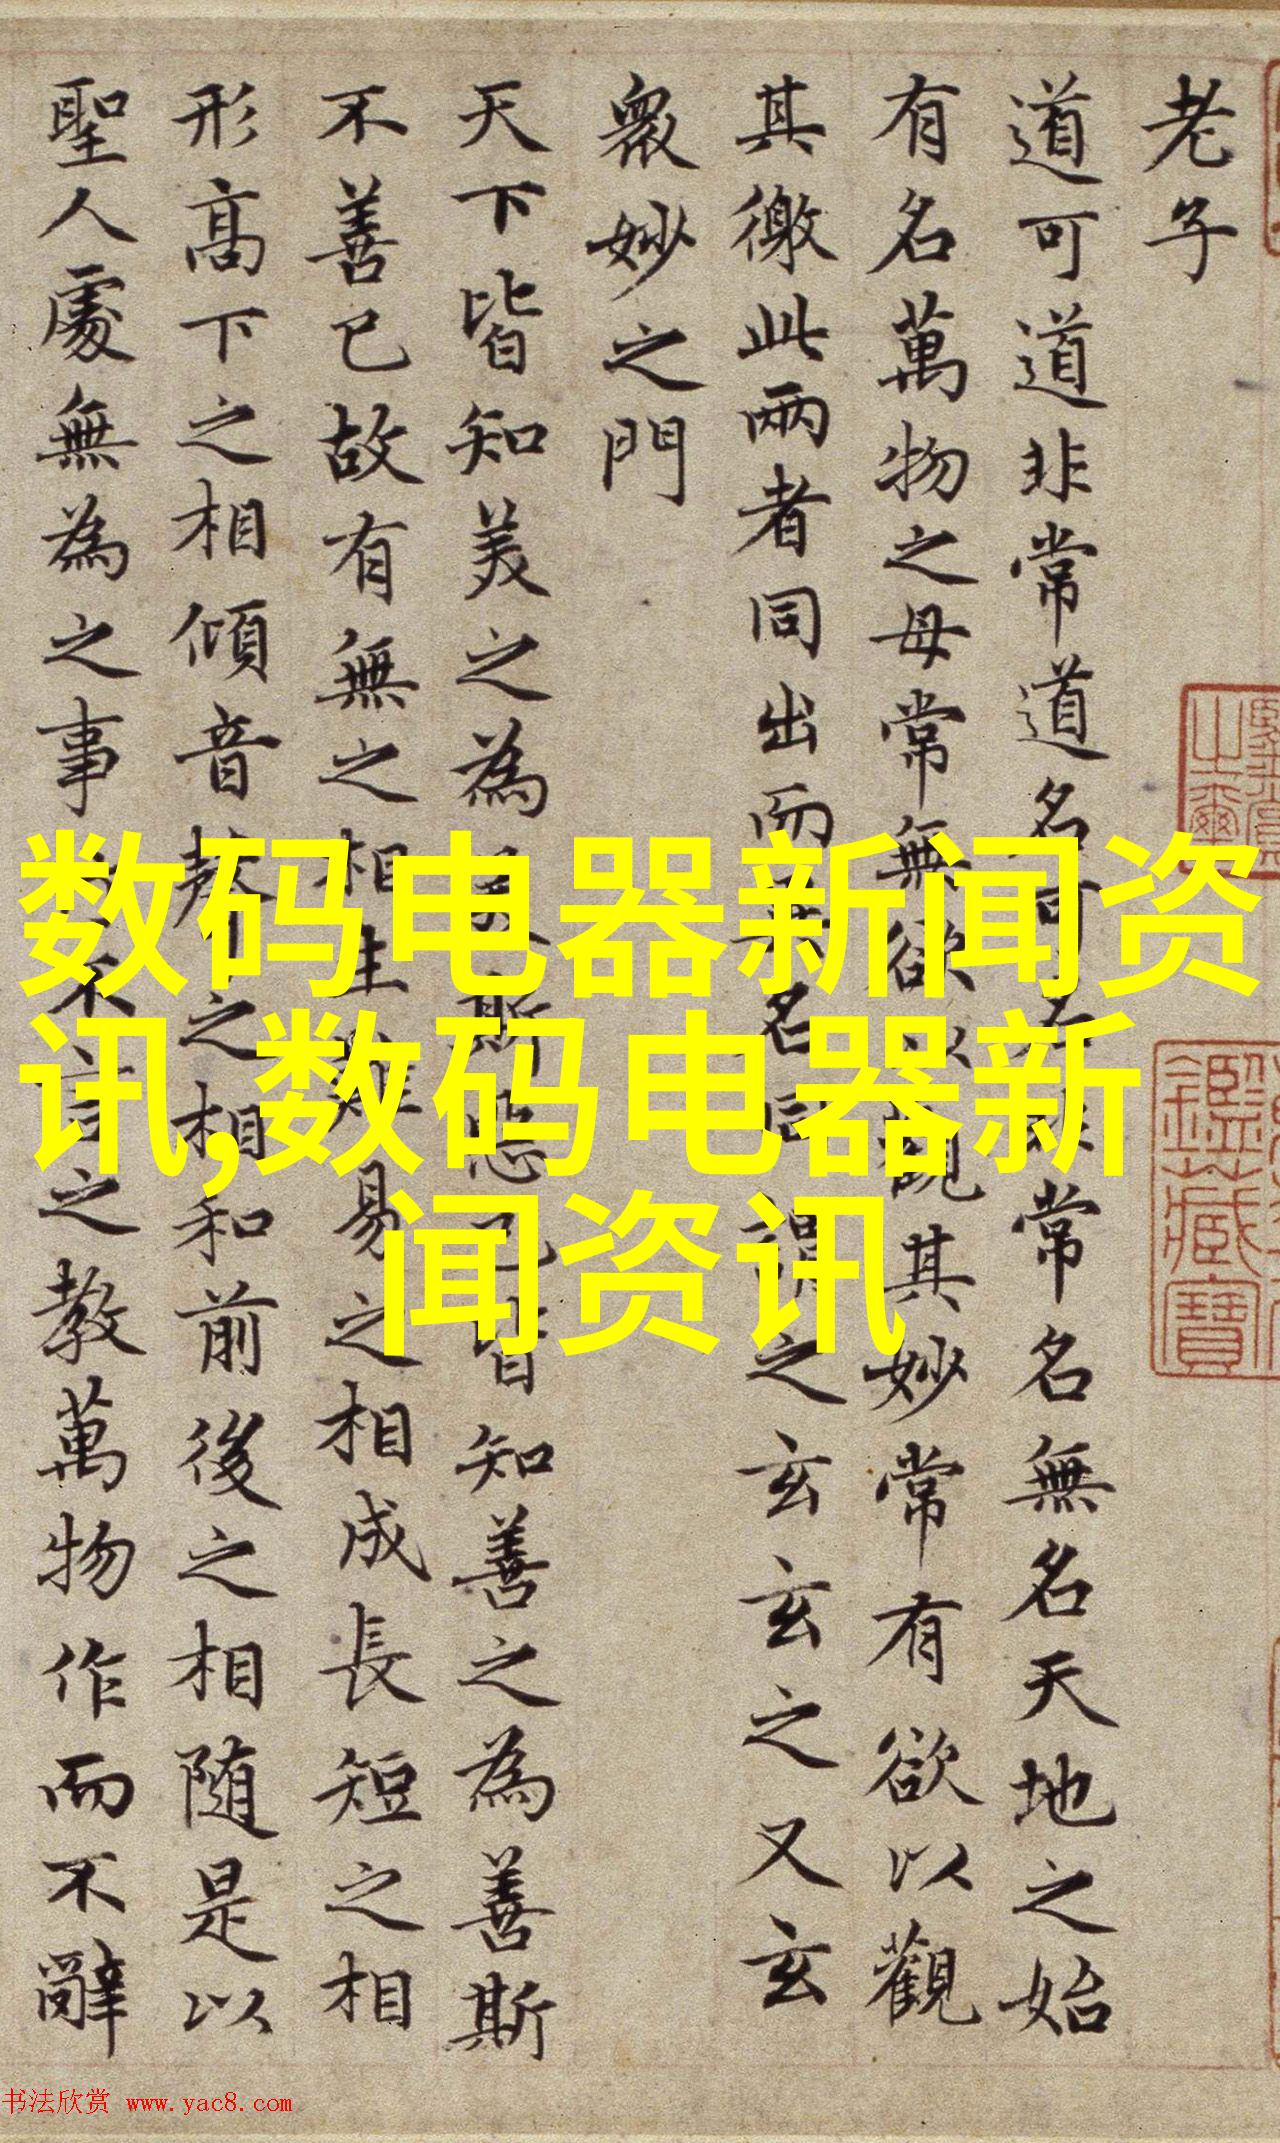 老子
道可道非常道名可名非常名無名天地之始
有名萬物之母常無欲以觀其妙常有欲以觀
其徼此兩者同出而異名同謂之玄玄之又玄
衆妙之門
天下皆知美之為美斯惡已皆知善之為善斯
不善已故有無之相生難易之相成長短之相
形高下之相傾音聲之相和前後之相随是以
聖人處無為之事行不言之教萬物作而不辭
数码电器新闻资
讯,数码电器新
闻资讯
鑑藏寶
书法欣赏 www.yac8.com